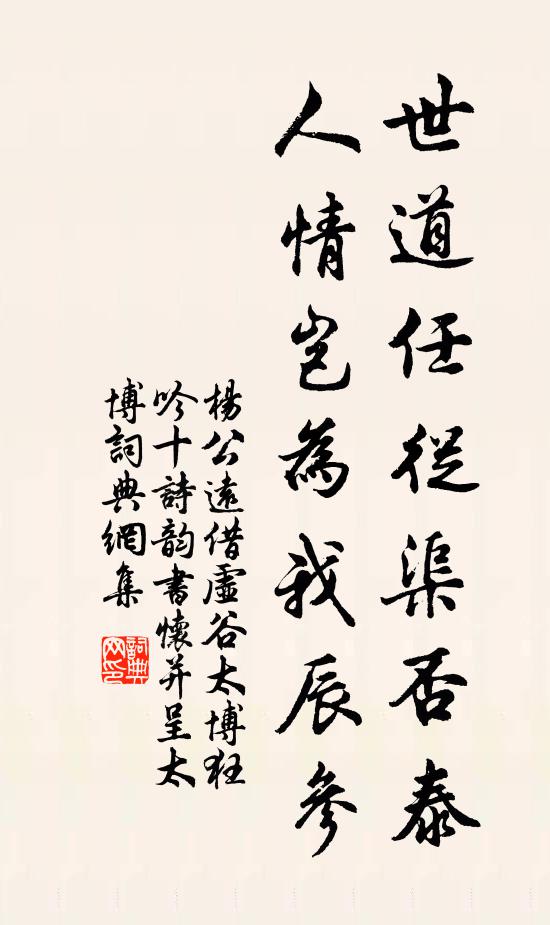 世道任從渠否泰
人情豈為我辰參
楊公遠借虛谷太博狂
吟十詩韵書懷并呈太
博詞典網集
詞典
网印